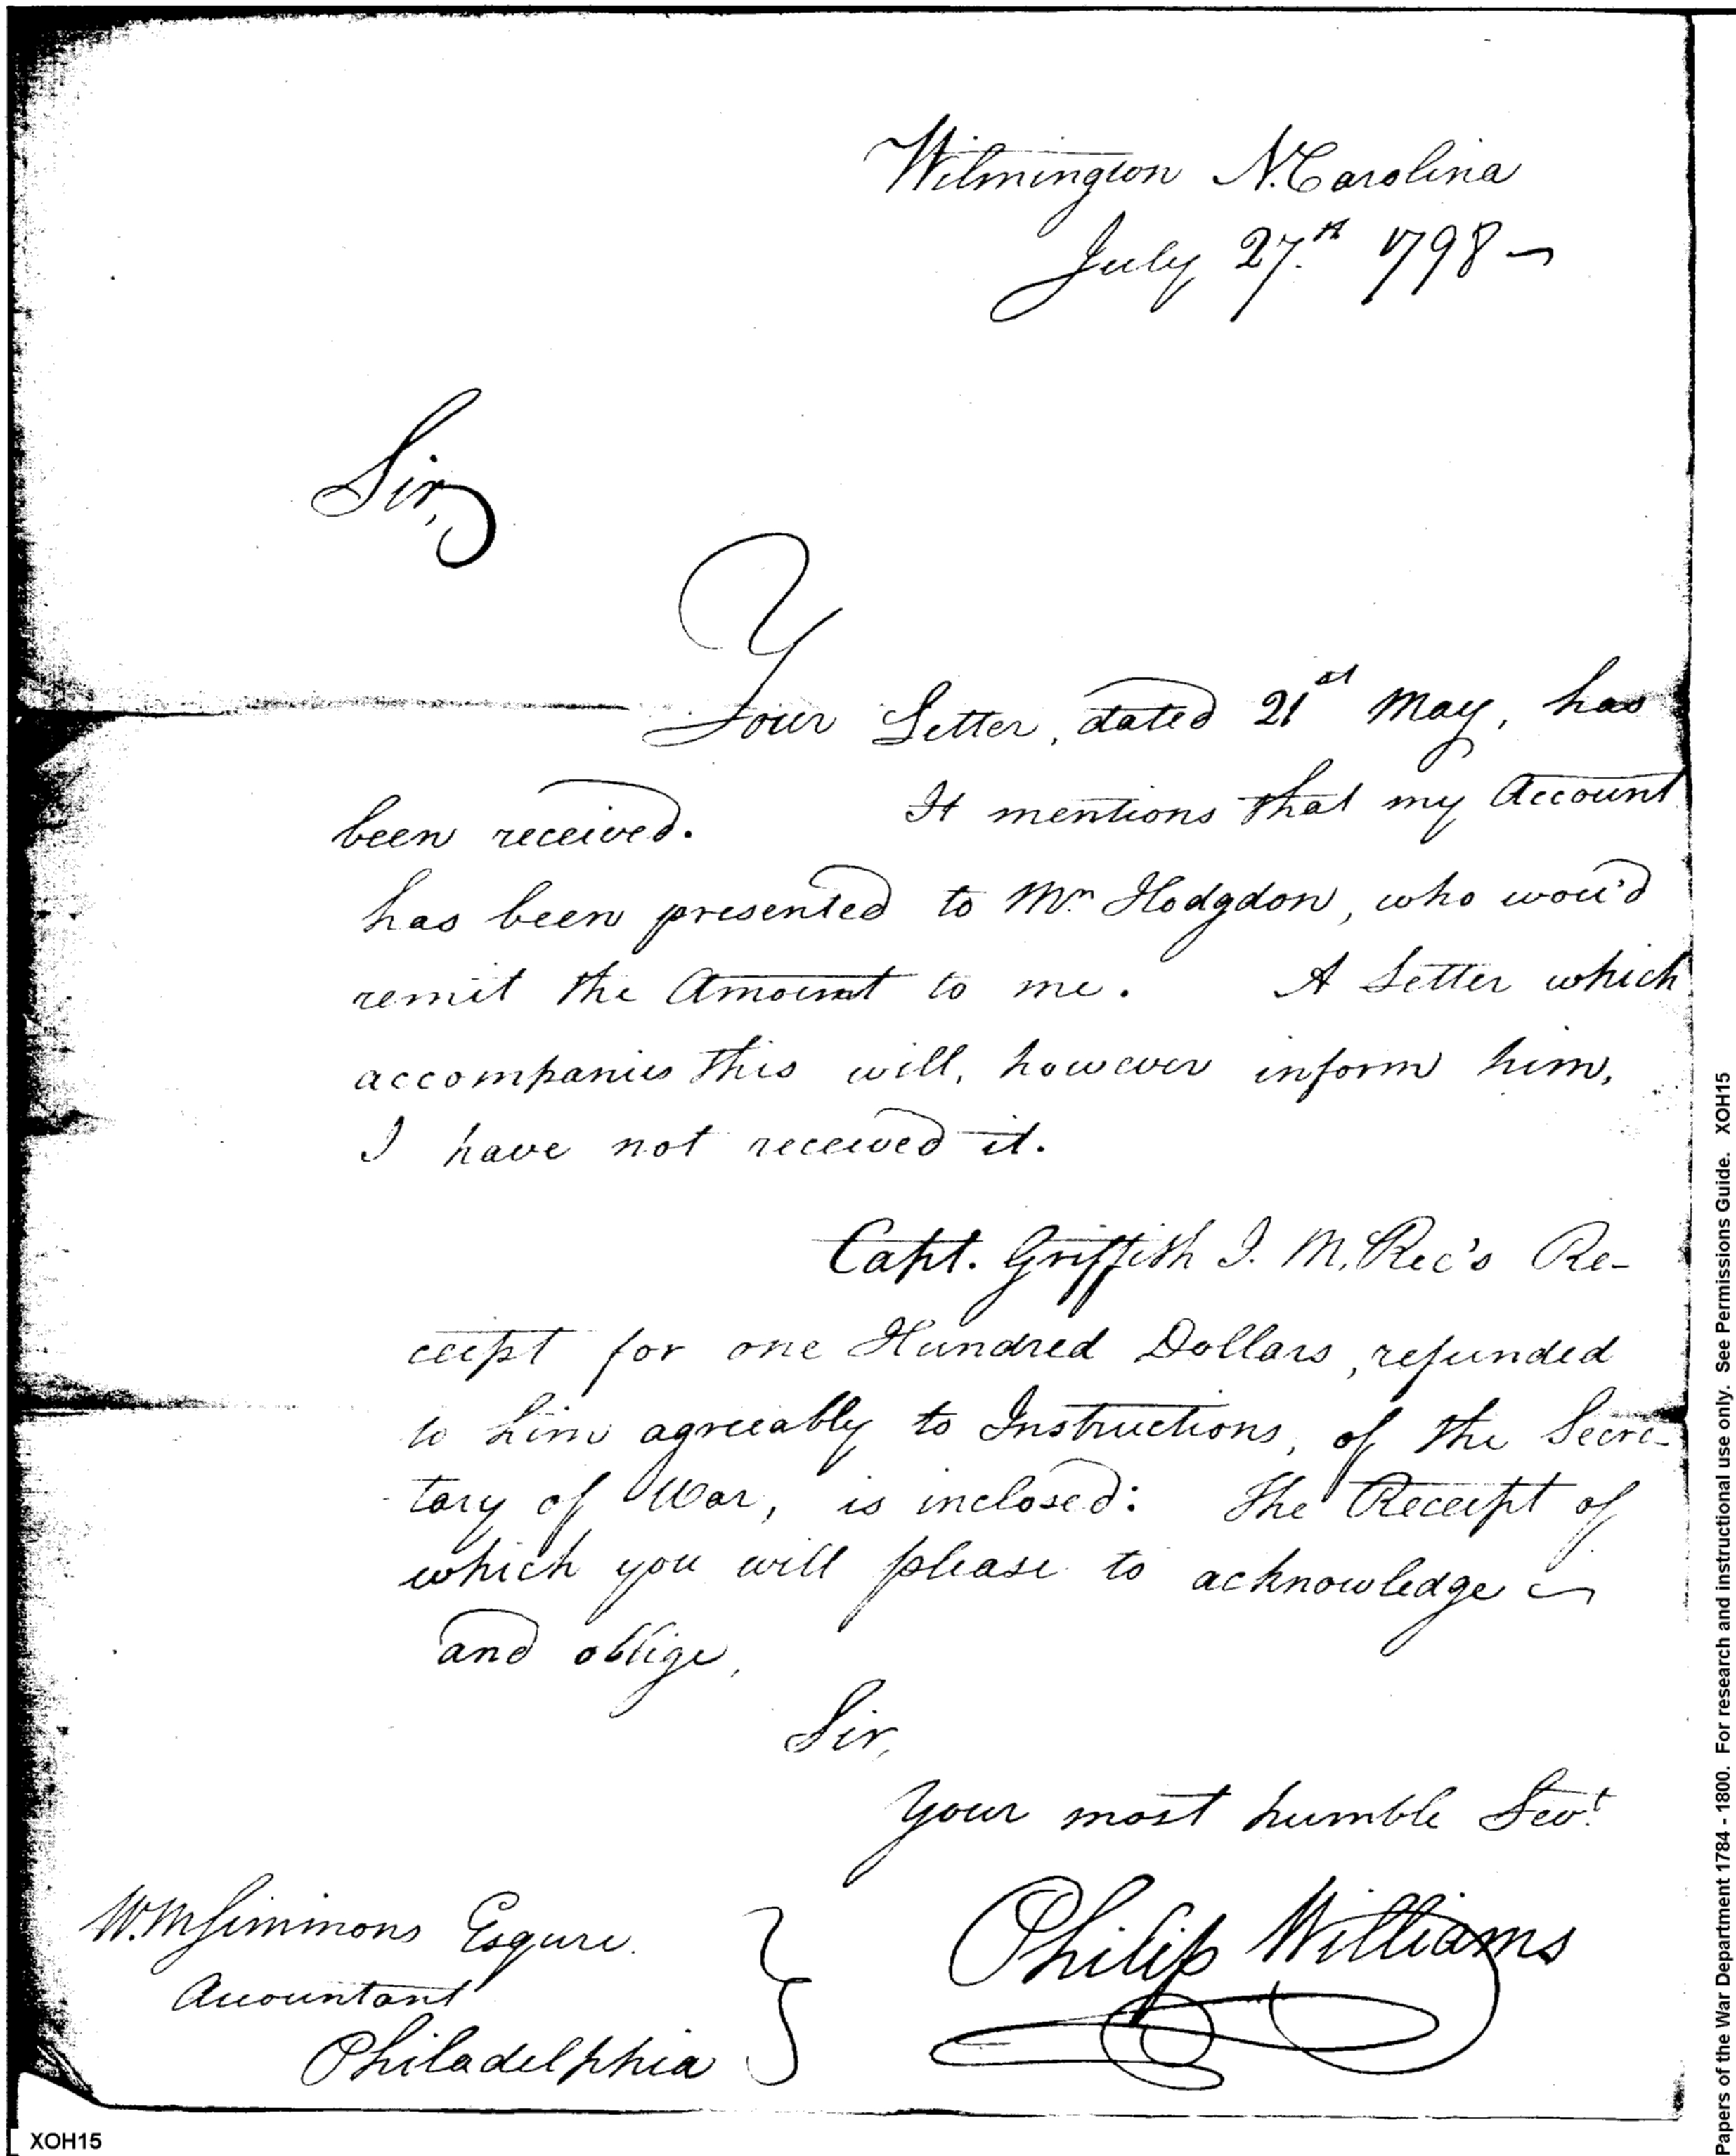 Wilmington N. Carolina
July 27.th 1798
Sir,
Your Letter, dated 21st May, has
been received. It mentions that my Account
has been presented to Mr. Hodgdon, who wou'd
remit the Amount to me. A Letter which
accompanies this will, however inform him,
I have not received it.
Capt. Griffith J. McRee's Re-
ceipt for one Hundred Dollars, refunded
to him agreeably to Instructions, of the Secre-
tary of War, is inclosed: The Receipt of
which you will please to acknowledge
and oblige,
Sir,
Your most humble Sevt.
Philip Williams
Wm Simmons Esqure.
Accountant
Philadelphia
XOH15
Papers of the War Department 1784 - 1800. For research and instructional use only. See Permissions Guide. XOH15